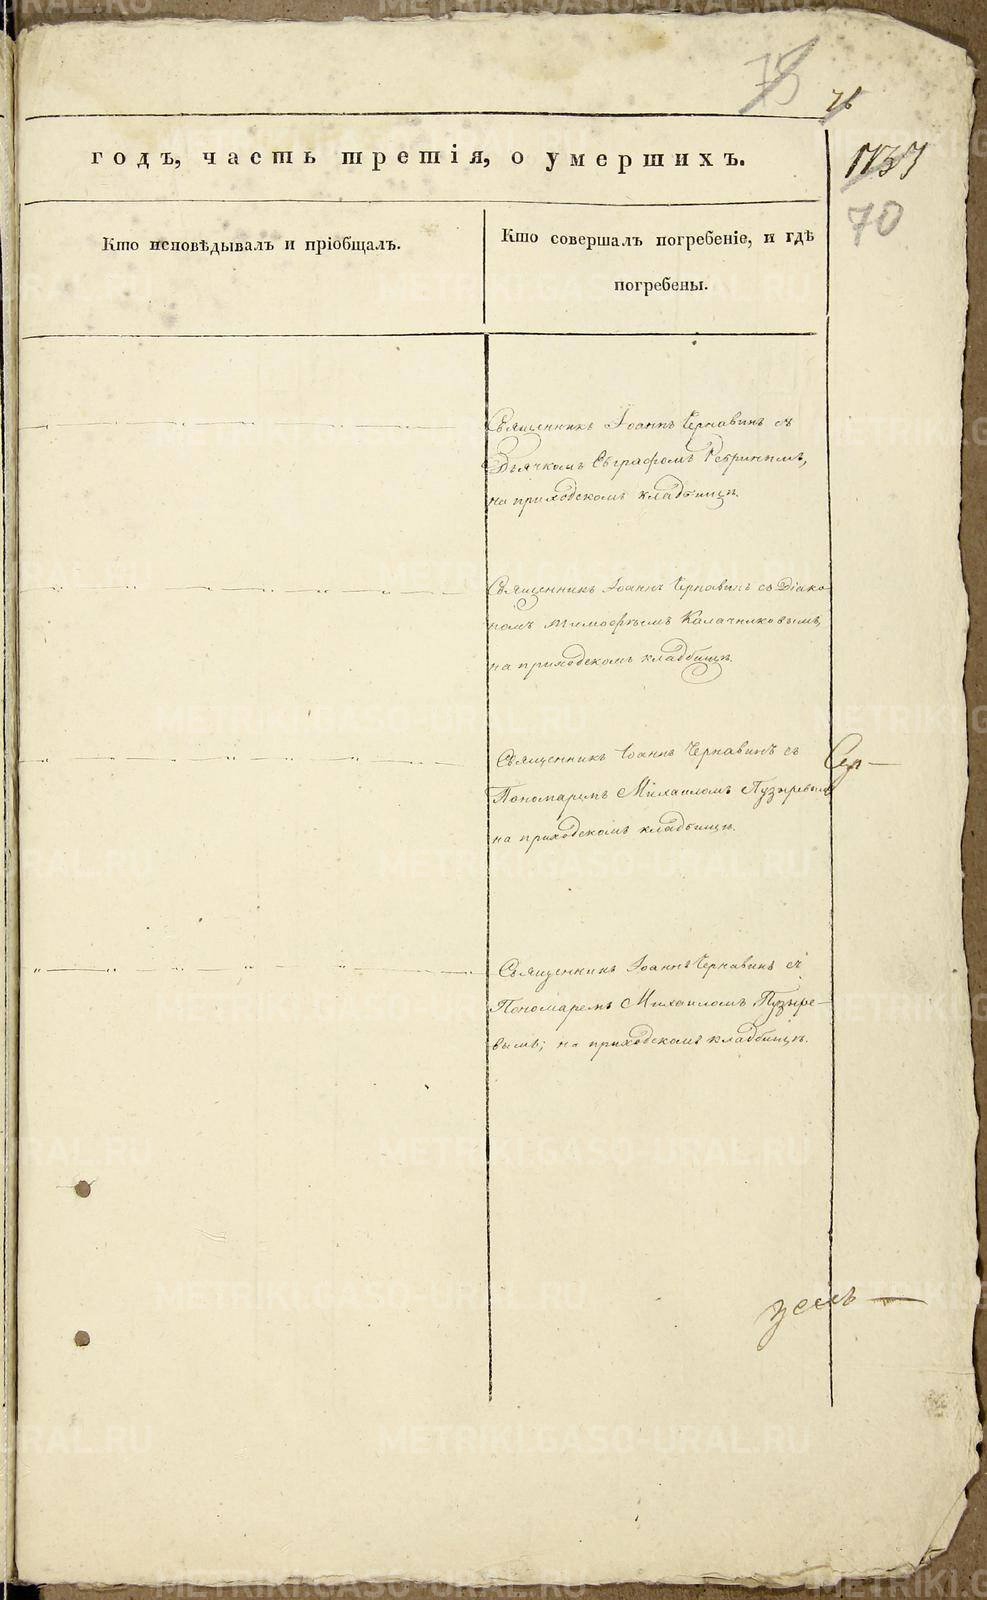 75
76
годъ, часть третія, о умершихъ.
70
Кто исповѣдывалъ и пріобщалъ.
Кто совершалъ погребеніе, и гдѣ
погребены.
Священникъ Іоаннъ Чернавинъ съ
Дьячкомъ Евграфомъ
на приходскомъ кладбищѣ.
Священникъ Іоаннъ Чернавинъ съ Діако-
номъ Тимофѣемъ Калачниковымъ,
на приходскомъ кладбищѣ.
Священникъ Іоаннъ Чернавинъ съ
Пономаремъ Михаиломъ Пузыревымъ
на приходскомъ кладбищѣ.
Священникъ Іоаннъ Чернавинъ съ
Пономаремъ Михаиломъ Пузыре-
вымъ; на приходскомъ кладбищѣ.
METRIKI.GASO-URAL.RU